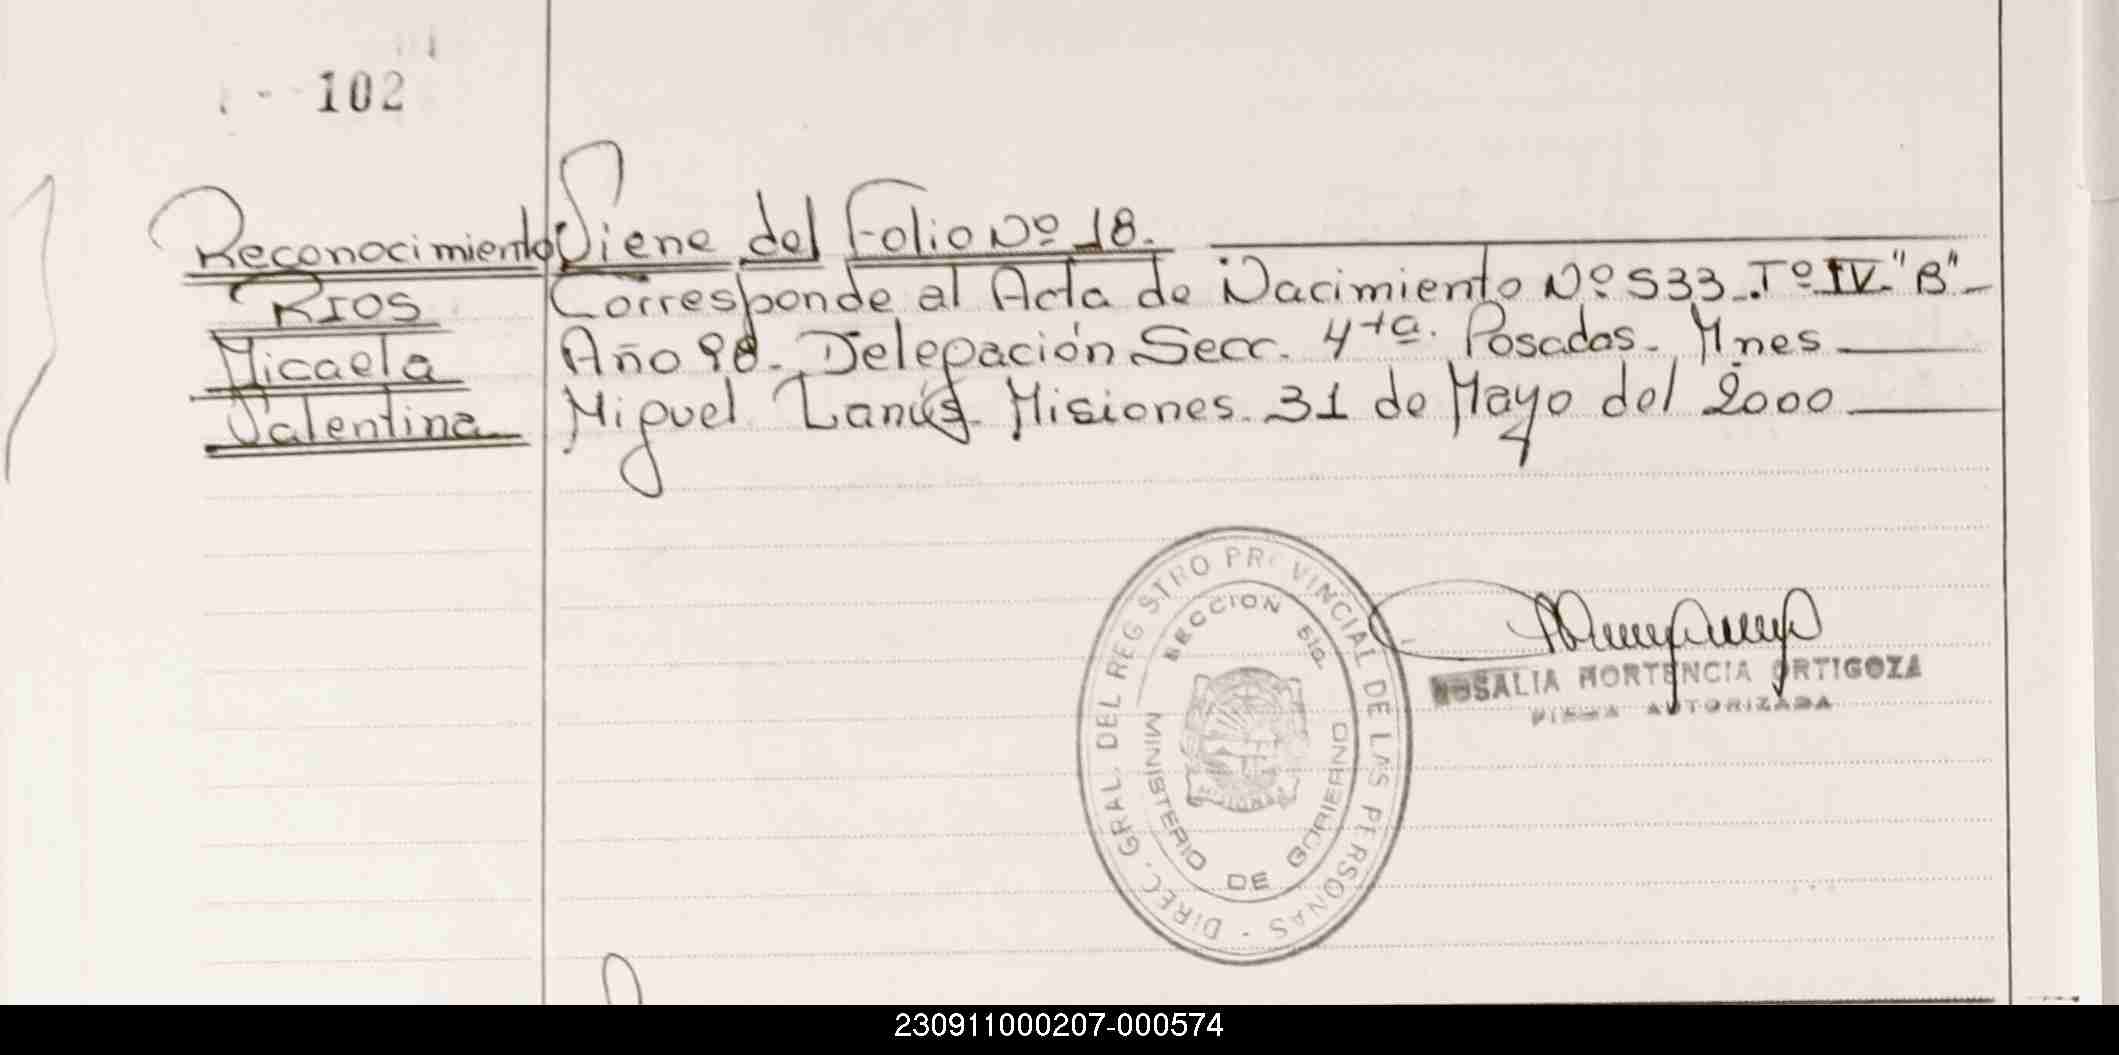 102
Reconocimiento Viene del Folio Nº 18.
RIOS Corresponde al Acta de Nacimiento Nº 533. Tº IV. "B"
Micaela Año 98. Delegación Secc. 4ta. Posadas. Mnes
Valentina Miguel Lanús. Misiones. 31 de Mayo del 2000
DIREC. GRAL. DEL REGISTRO PROVINCIAL DE LAS PERSONAS
SECCION
MINISTERIO DE GOBIERNO
MISIONES
ROSALIA HORTENCIA ORTIGOZA
FIRMA AUTORIZADA
230911000207-000574